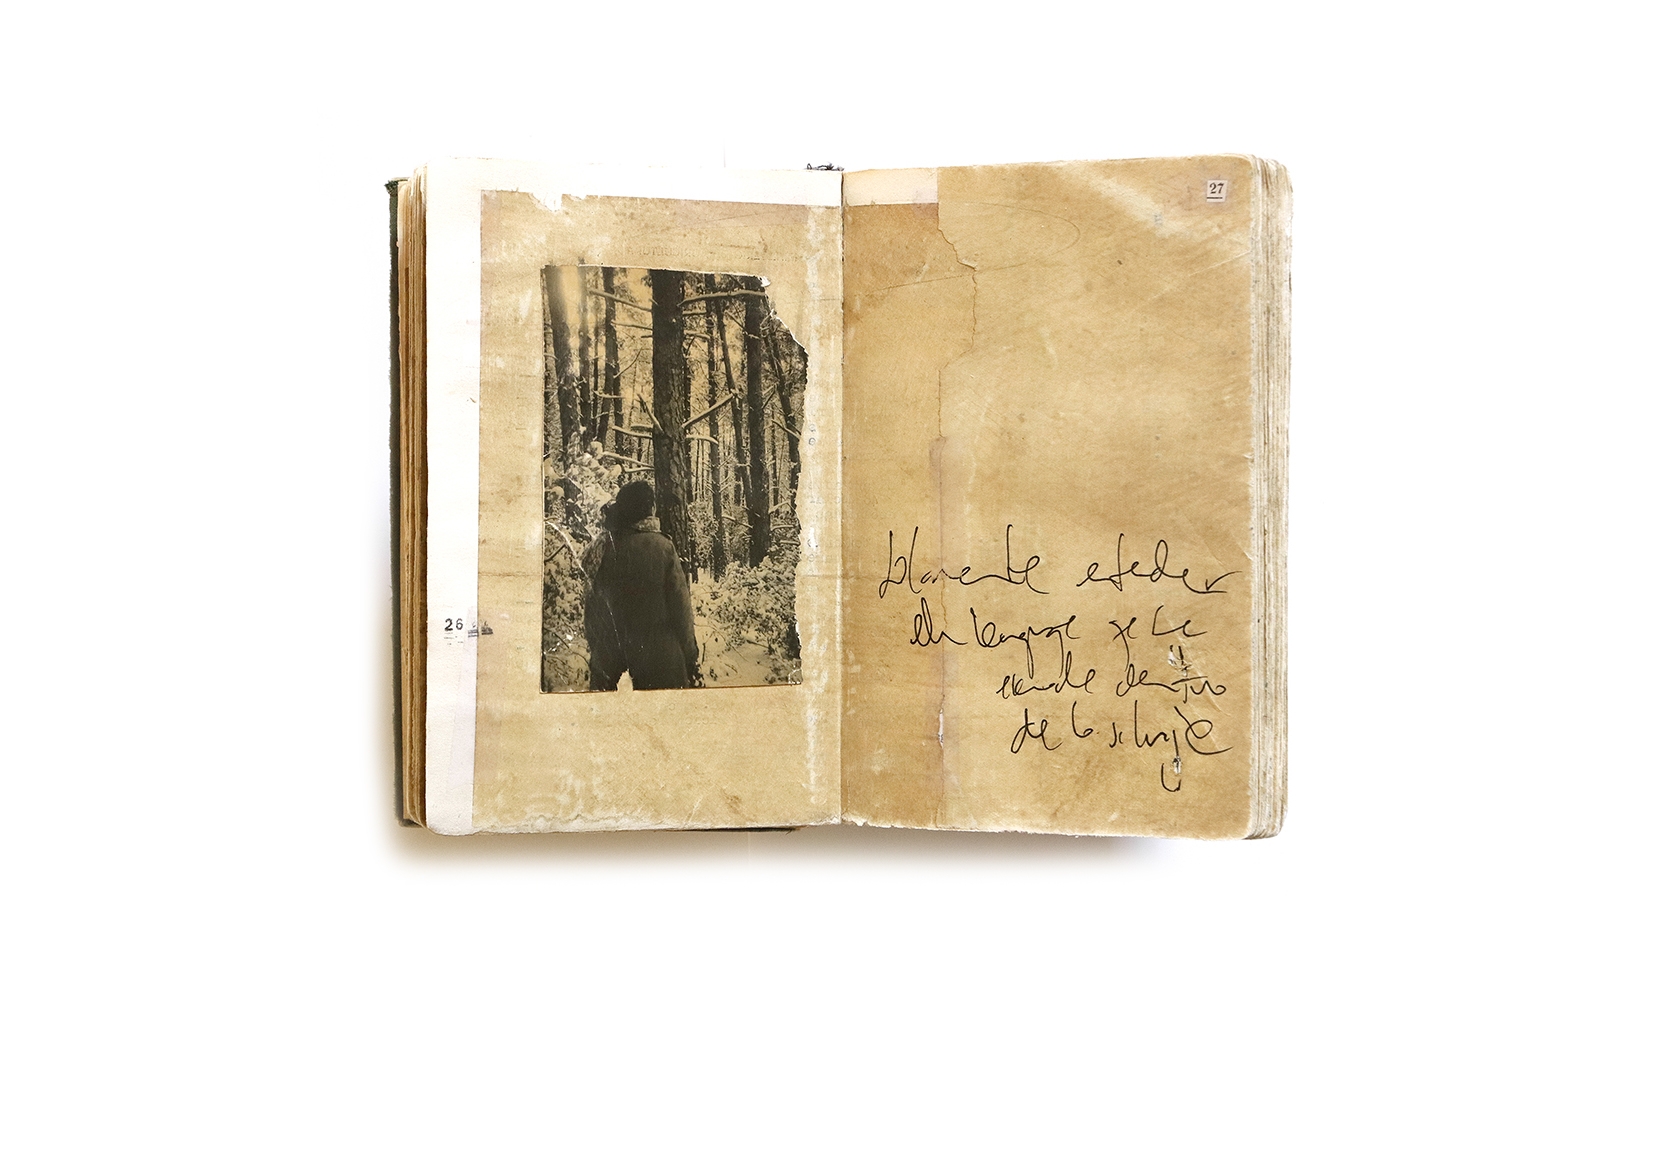 26
27
entender
el lenguaje que se
esconde dentro
de lo salvaje